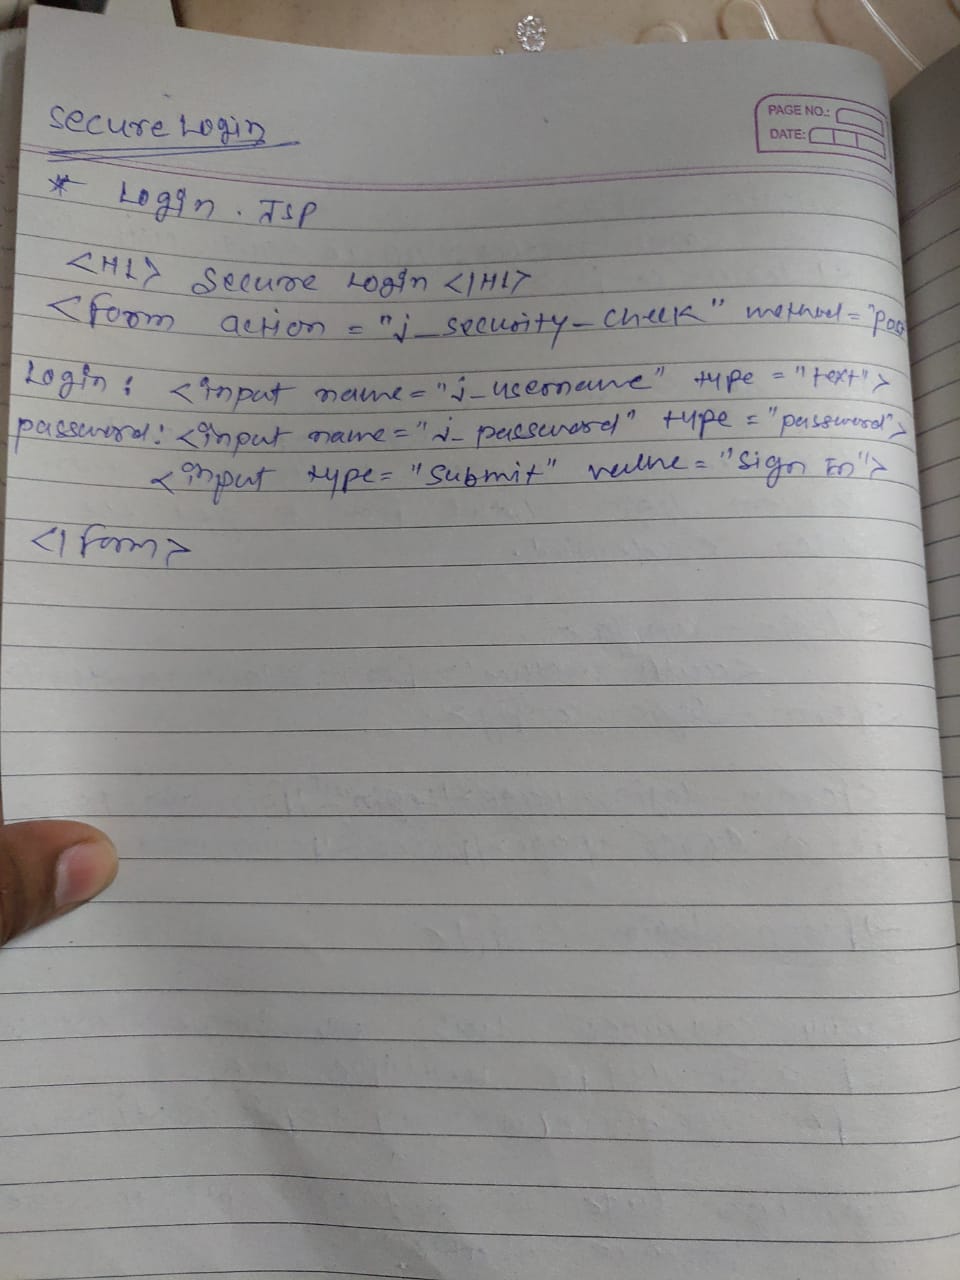 Secure Login
PAGE NO.:
DATE:
* Login . JSP
<H1> Secure Login </H1>
<form action = "j_security_check" method = "post
Login : <input name = "j_username" type = "text">
password : <input name = "j_password" type = "password">
<input type = "Submit" value = "Sign In">
</form>